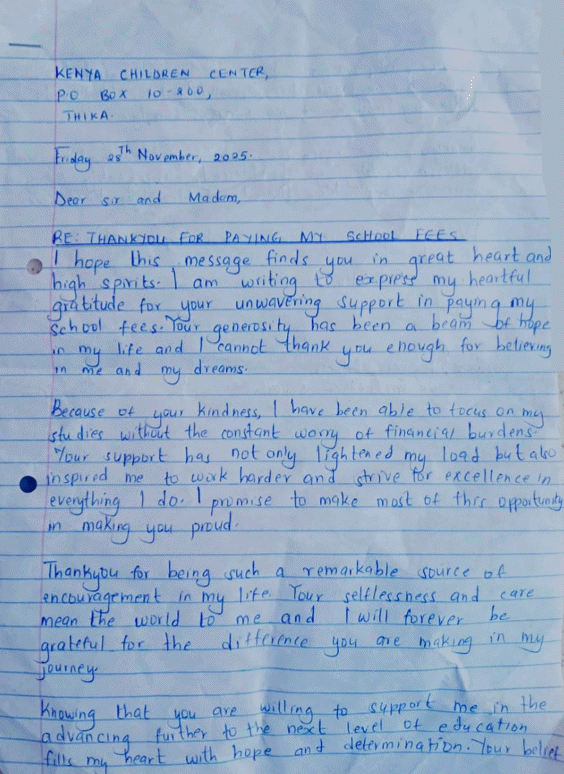 KENYA CHILDREN CENTER,
P.O BOX 10-200,
THIKA.
Friday 28th November, 2025.
Dear sir and Madam,
RE: THANKYOU FOR PAYING MY SCHOOL FEES
I hope this message finds you in great heart and
high spirits. I am writing to express my heartful
gratitude for your unwavering support in paying my
school fees. Your generosity has been a beam of hope
in my life and I cannot thank you enough for believing
in me and my dreams.
Because of your kindness, I have been able to focus on my
studies without the constant worry of financial burdens.
Your support has not only lightened my load but also
inspired me to work harder and strive for excellence in
everything I do. I promise to make most of this opportunity
in making you proud.
Thankyou for being such a remarkable source of
encouragement in my life. Your selflessness and care
mean the world to me and I will forever be
grateful for the difference you are making in my
journey.
Knowing that you are willing to support me in the
advancing further to the next level of education
fills my heart with hope and determination. Your belief